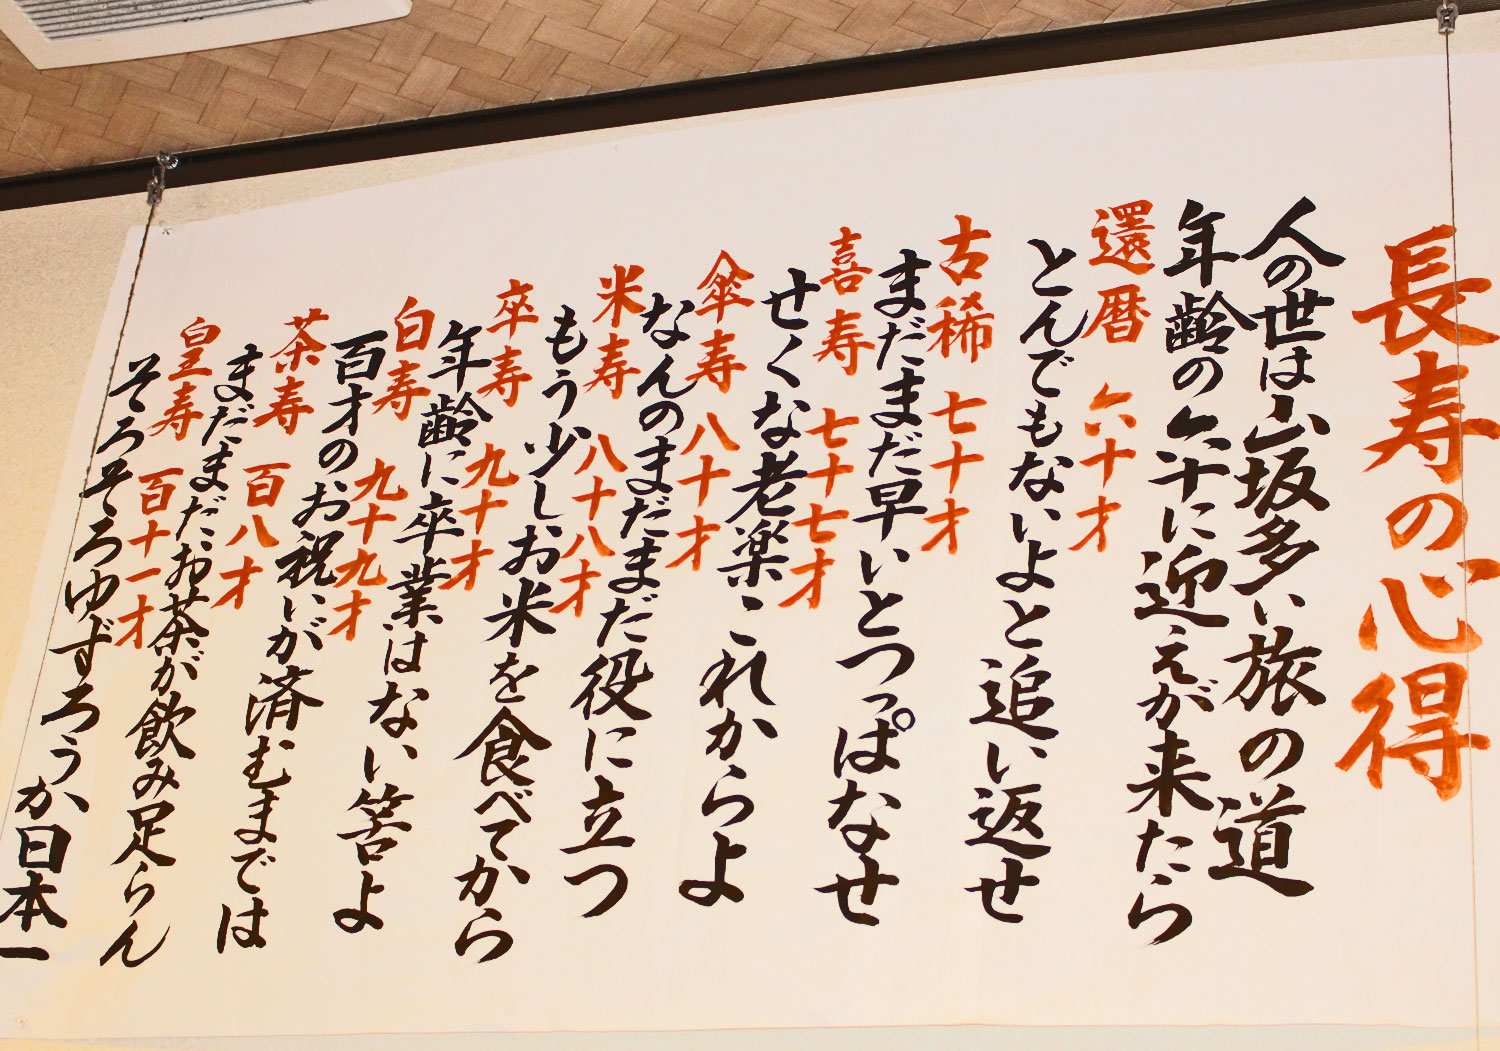 長寿の心得
人の世は山坂多い旅の道
年齢の六十に迎えが来たら
還暦 六十才
とんでもないよと追い返せ
古稀 七十才
まだまだ早いとつっぱなせ
喜寿 七十七才
せくな老楽これからよ
傘寿 八十才
なんのまだまだ役に立つ
米寿 八十八才
もう少しお米を食べてから
卒寿 九十才
年齢に卒業はない筈よ
白寿 九十九才
百才のお祝いが済むまでは
茶寿 百八才
まだまだお茶が飲み足らん
皇寿 百十一才
そろそろゆずろうか日本一